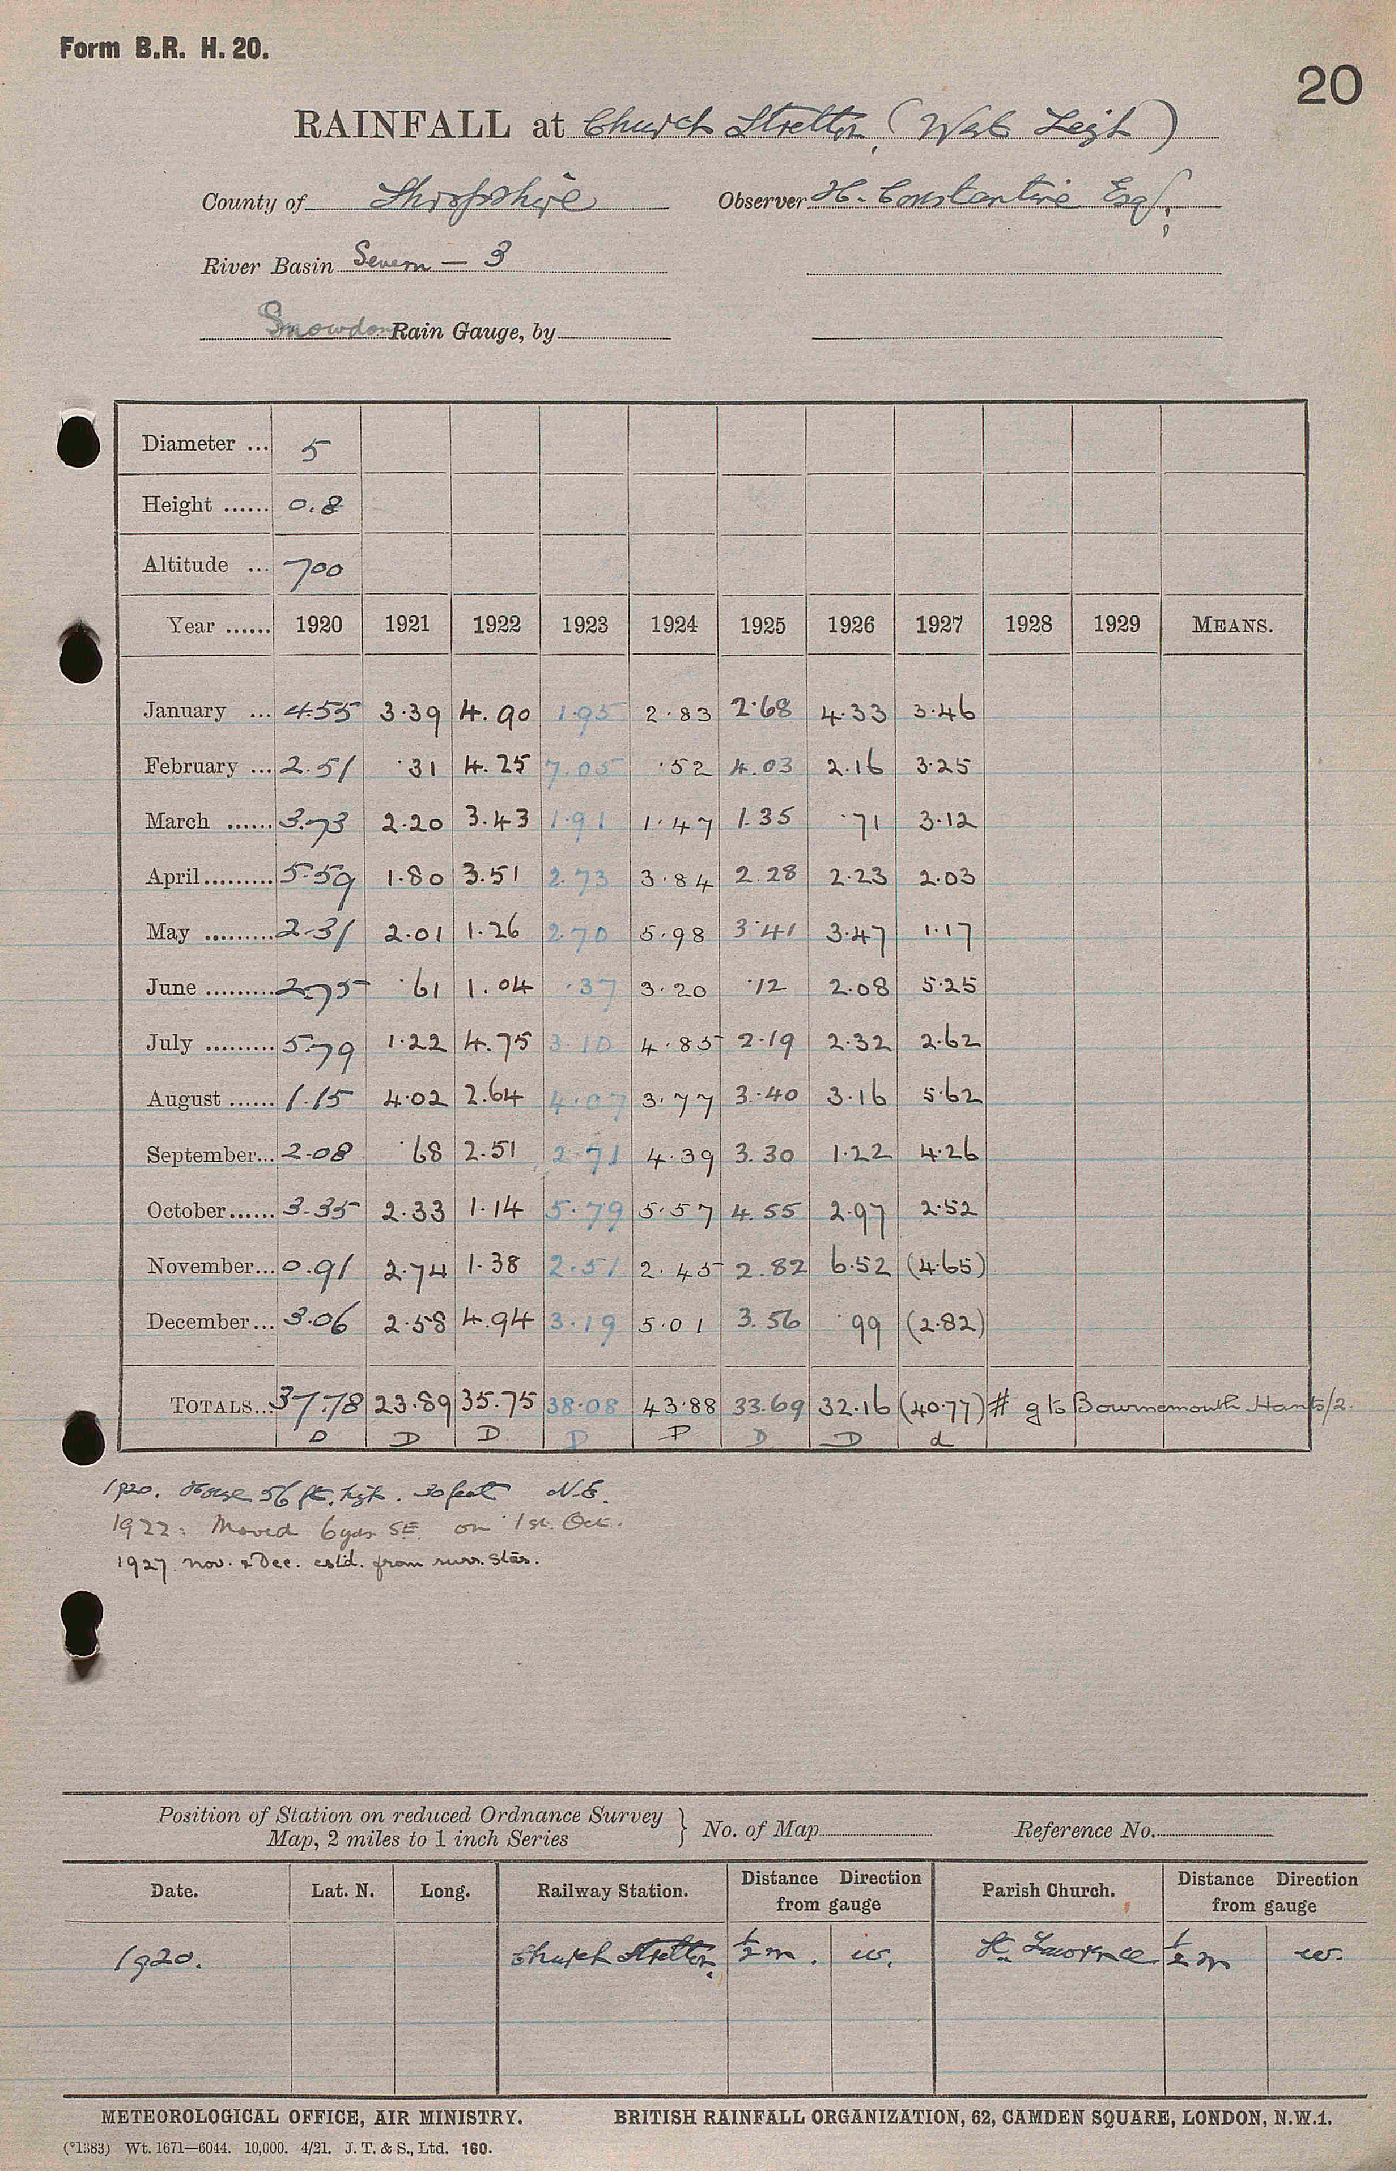 Form B.R. H. 20.
20
RAINFALL at Church Stretton, (West Leigh)
County of Shropshire Observer H. Constantine Esq.
River Basin Severn - 3
Snowdon Rain Gauge, by
Diameter ... 5
Height ...... 0.8
Altitude ... 700
Year ...... 1920 1921 1922 1923 1924 1925 1926 1927 1928 1929 MEANS.
January ... 4.55 3.39 4.90 1.95 2.83 2.68 4.33 3.46
February ... 2.51 .31 4.25 7.05 .52 4.03 2.16 3.25
March ...... 3.73 2.20 3.43 1.91 1.47 1.35 .71 3.12
April ......... 5.59 1.80 3.51 2.73 3.84 2.28 2.23 2.03
May ......... 2.31 2.01 1.26 2.70 5.98 3.41 3.47 1.17
June ......... 2.75 .61 1.04 .37 3.20 .12 2.08 5.25
July ......... 5.79 1.22 4.75 3.10 4.85 2.19 2.32 2.62
August ...... 1.15 4.02 2.64 4.07 3.77 3.40 3.16 5.62
September... 2.08 .68 2.51 2.71 4.39 3.30 1.22 4.26
October...... 3.35 2.33 1.14 5.79 5.57 4.55 2.97 2.52
November... 0.91 2.74 1.38 2.51 2.45 2.82 6.52 (4.65)
December... 3.06 2.58 4.94 3.19 5.01 3.56 .99 (2.82)
TOTALS... 37.78 23.89 35.75 38.08 43.88 33.69 32.16 (40.77) # g to Bournemouth Hants/2.
D D D D P D D d
1920. House 56 ft. high. 30 feet N.E.
1922: Moved 6 yds SE. on 1st. Oct.
1927 Nov. & Dec. estd. from surr. stns.
Position of Station on reduced Ordnance Survey
Map, 2 miles to 1 inch Series } No. of Map Reference No.
Date. Lat. N. Long. Railway Station. Distance Direction from gauge Parish Church. Distance Direction from gauge
1920. Church Stretton. ½ m. w. St. Lawrence ½ m w.
METEOROLOGICAL OFFICE, AIR MINISTRY. BRITISH RAINFALL ORGANIZATION, 62, CAMDEN SQUARE, LONDON, N.W.1.
(*1383) Wt. 1671—6044. 10,000. 4/21. J. T. & S., Ltd. 160.